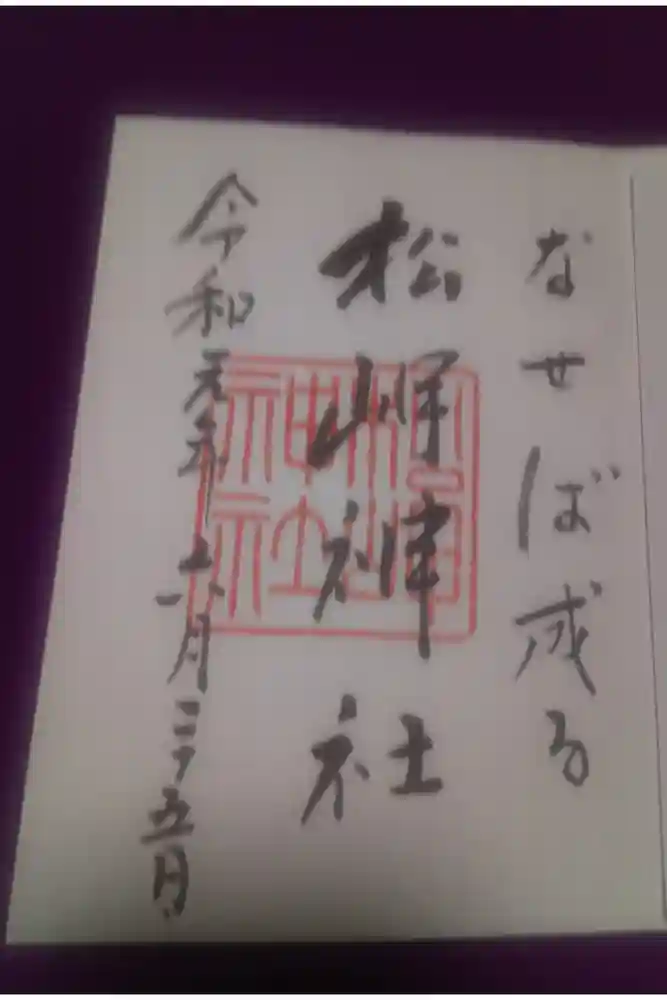 なせば成る
松岬神社
令和元年六月二十五日